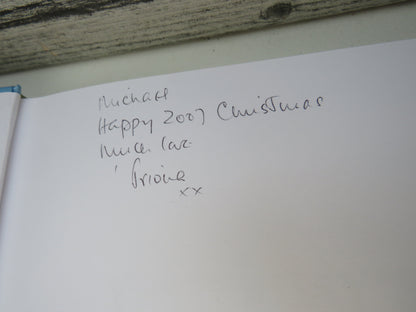 Michael
Happy 2007 Christmas
Much love
xx